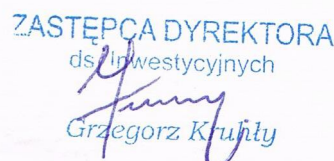 ZASTĘPCA DYREKTORA
ds. Inwestycyjnych
Grzegorz